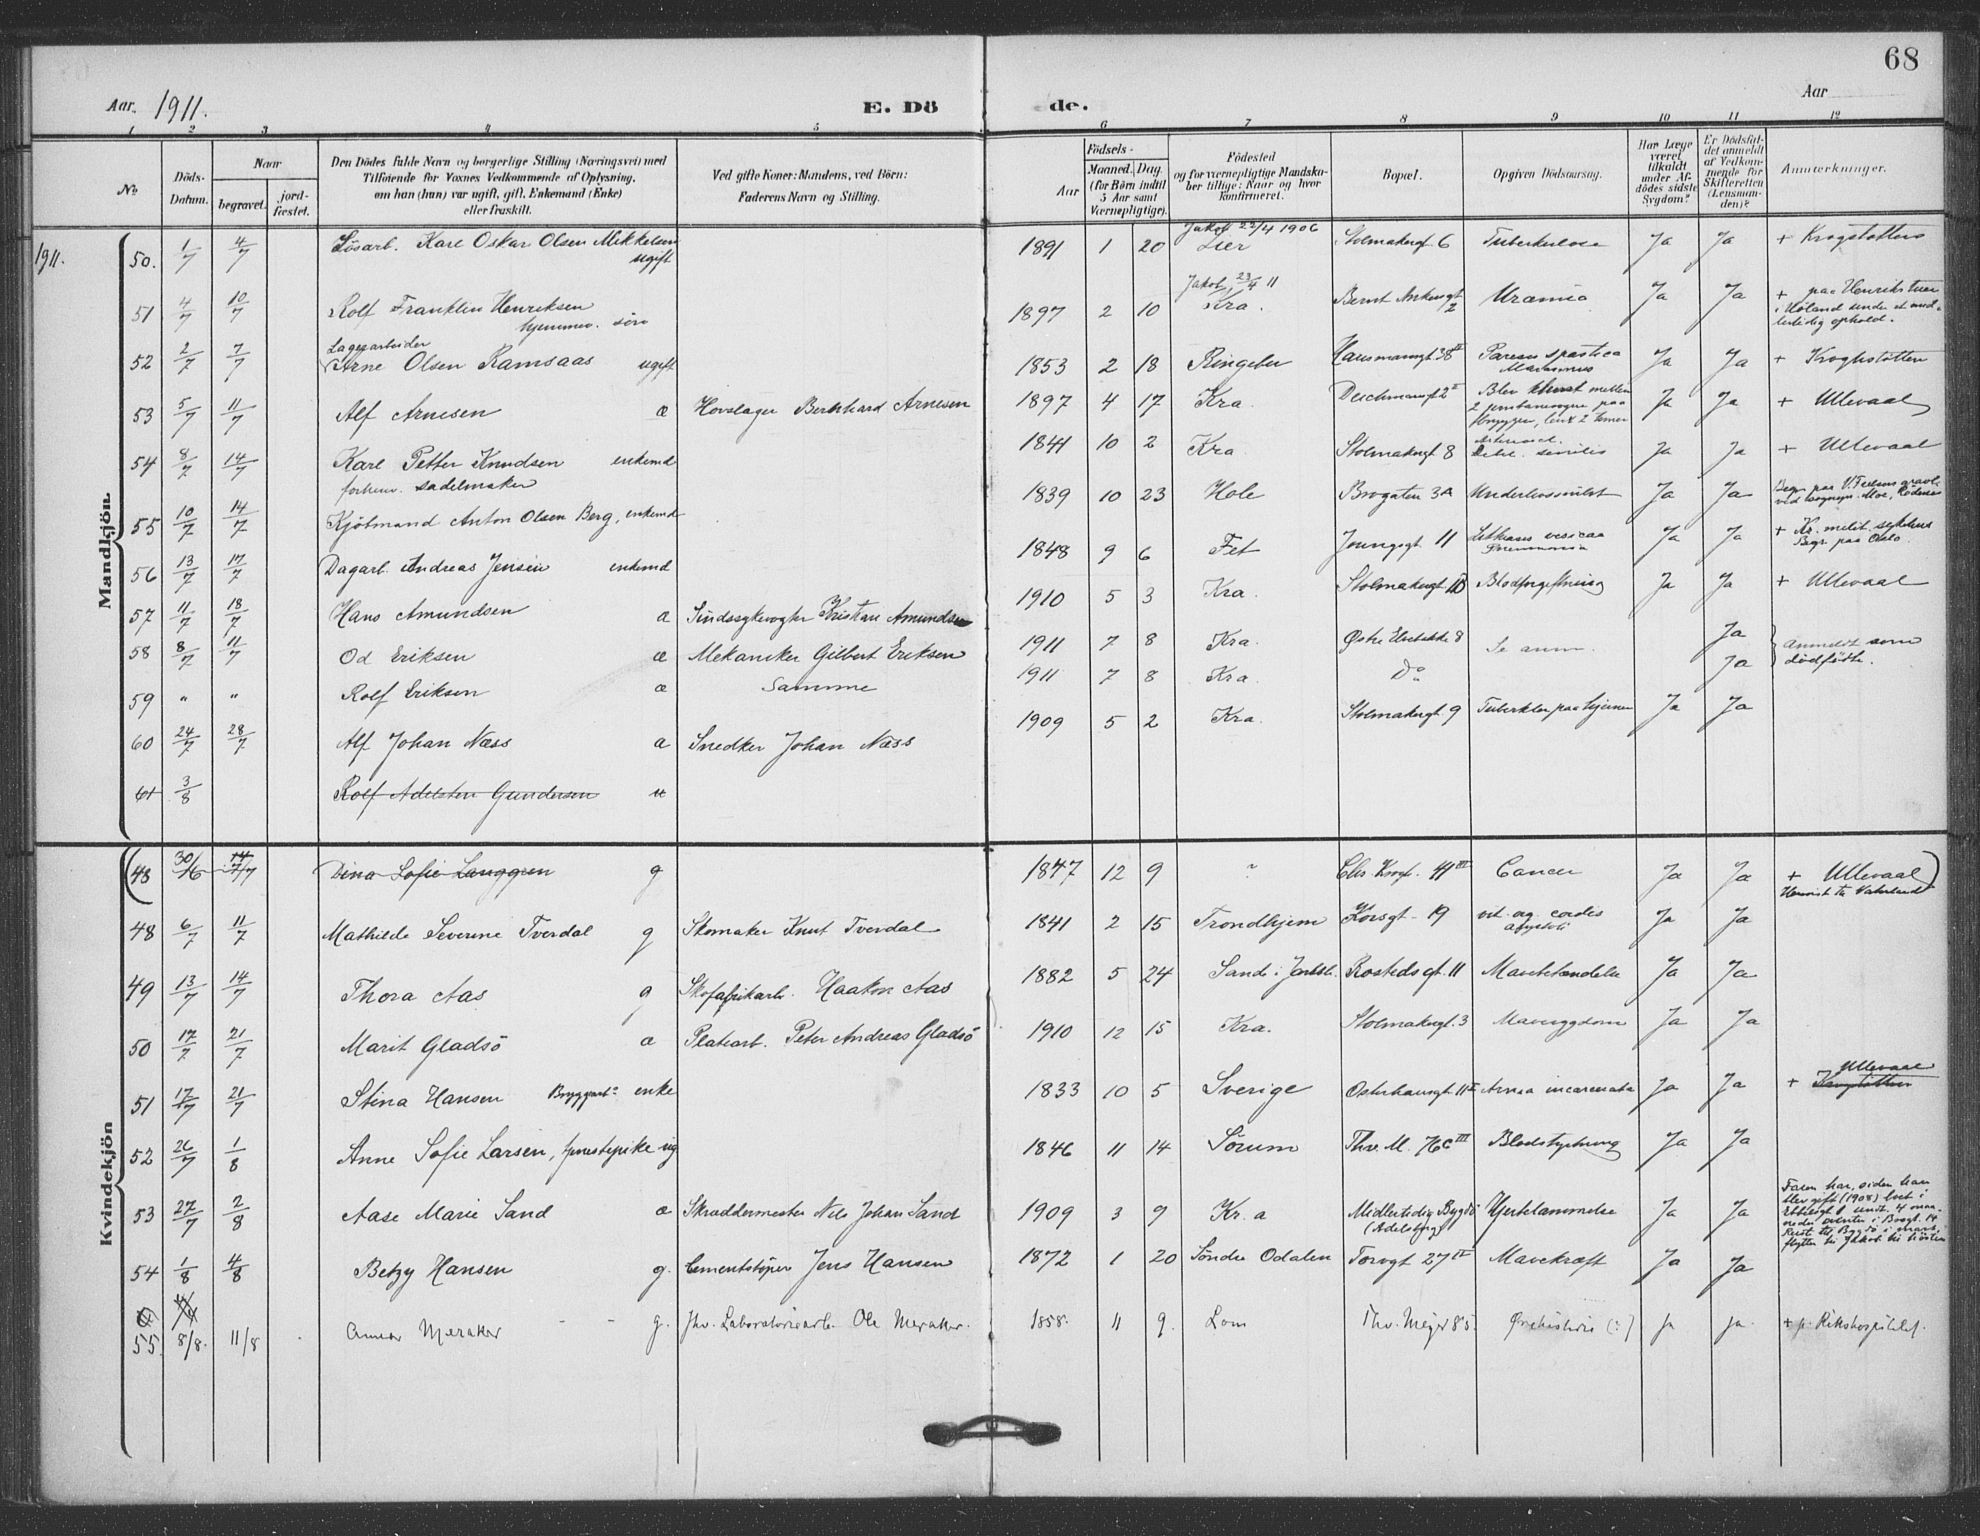 68
Aar. 1911.
E. Dö
de.
Aar
1 2 3 4 5 6 7 8 9 10 11 12
No
Döds-Datum.
Naar begravet. jord-fæstet.
Den Dödes fulde Navn og borgerlige Stilling (Næringsvei) med Tilföiende for Voxnes Vedkommende af Oplysning, om han (hun) var ugift, gift, Enkemand (Enke) eller fraskilt.
Ved gifte Koner: Mandens, ved Börn: Faderens Navn og Stilling.
Födsels-
Aar
Maaned. Dag. (for Börn indtil 5 Aar samt Værnepligtige).
Födested og for værnepligtige Mandskaber tillige: Naar og hvor konfirmeret.
Bopæl.
Opgiven Dödsaarsag.
Har Læge været tilkaldt under Afdödes sidste Sygdom?
Er Dödsfaldet anmeldt af Vedkommende for Skifteretten (Lensmanden)?
Anmærkninger.
1911.
Mandkjön
50. 1/7 4/7 Løsarb. Karl Oskar Olsen Mikkelsen ugift 1891 1 20 Jakob 22/4 1906 Lier Stolmakergt 6 Tuberkulose Ja Ja + Krogstøtten
51 4/7 10/7 Rolf Franklin Henriksen hjemmev. søn 1897 2 10 Jakob, 23/4 11 Kra. Bernt Ankersgt 2 Uræmia Ja Ja + paa Henrikstuen i Høland under et midlertidig ophold.
52 2/7 7/7 Lagerarbeider Arne Olsen Ramsaas ugift 1853 2 18 Ringebu Hausmannsgt 38 II Parese spastica Marasmus Ja Ja + Kroghstøtten
53 5/7 11/7 Alf Arnesen æ Hovslager Bernhard Arnesen 1897 4 17 Kra. Deichmansgt 2 II Blev klemt mellem 2 paa Bryggen, Ja Ja + Ullevaal
54 8/7 14/7 Karl Petter Knudsen enkemd forhenv. sadelmaker 1841 10 2 Kra Stolmakergt 8 senilis Ja Ja + Ullevaal
55 10/7 14/7 Kjötmand Anton Olsen Berg, enkemd 1839 10 23 Hole Brogaten 3A Underlivssvulst Ja Ja Begr. paa
56 13/7 17/7 Dagarb. Andreas Jensen enkemd 1848 9 6 Fet Youngsgt 11 vesicae Pneumonia Ja Ja + Kr. milit. sykehus Begr. paa Oslo.
57 11/7 18/7 Hans Amundsen a Sindssykevogter Kristian Amundsen 1910 5 3 Kra. Stolmakergt. 11B Blodforgiftning Ja Ja + Ullevaal
58 8/7 11/7 Od Eriksen æ Mekaniker Gilbert Eriksen 1911 7 8 Kra. Østre Elvebakke 8 Se anm. Ja Anmeldt som
59 " " Rolf Eriksen æ Samme 1911 7 8 Kra Do Ja dødfødte.
60 24/7 28/7 Alf Johan Næss a Snedker Johan Næss 1909 5 2 Kra. Stolmakergt 9 Tuberkler paa hjernen Ja Ja
61 3/8 Rolf Adelsten Gundersen u
Kvindekjön
(48 30/6 7/7 Dina Sofie Langgren g 1847 12 9 ? Chr. Krogt. 41 III Cancer Ja Ja + Ullevaal)
48 6/7 11/7 Mathilde Severine Tverdal g Skomaker Knut Tverdal 1841 2 15 Trondhjem Korsgt. 19 vit. og. cordis Ja Ja
49 13/7 14/7 Thora Aas g Skofabrikarb. Haakon Aas 1882 5 24 Sande i Jarlsb. Rosteds gt. 11 Mavebetændelse Ja Ja
50 17/7 21/7 Marit Gladsö a Platearb. Peter Andreas Gladsö 1910 12 15 Kra. Stolmakergt. 3 Mavesygdom Ja Ja
51 17/7 21/7 Stina Hansen Bryggearb. enke 1833 10 5 Sverige Osterhausgt 11 II incarcerata Ja Ja + Ullevaal Krogstøtten
52 26/7 1/8 Anne Sofie Larsen, fhv. tjenestepike ug 1846 11 14 Sörum Thv. M. 76c III Blodstyrtning Ja Ja
53 27/7 2/8 Aase Marie Sand æ Skræddermester Nils Johan Sand 1909 3 9 Kr.a Midlertidig Bygdö (Adelsberg) Hjertelammelse Ja Ja Faren har, siden han blev gift (1908) boet i
54 1/8 4/8 Betzy Hansen g. Cementstøper Jens Hansen 1872 1 20 Søndre Odalen Torvgt 27 IV Mavekræft Ja Ja
55. 8/8. 11/8 Anna Meraker g. fhv. Laboratoriearb. Ole Meraker. 1858. 11 9. Lom Thv. Meyer 85 Ja ja. + p. Rikshospitalet.